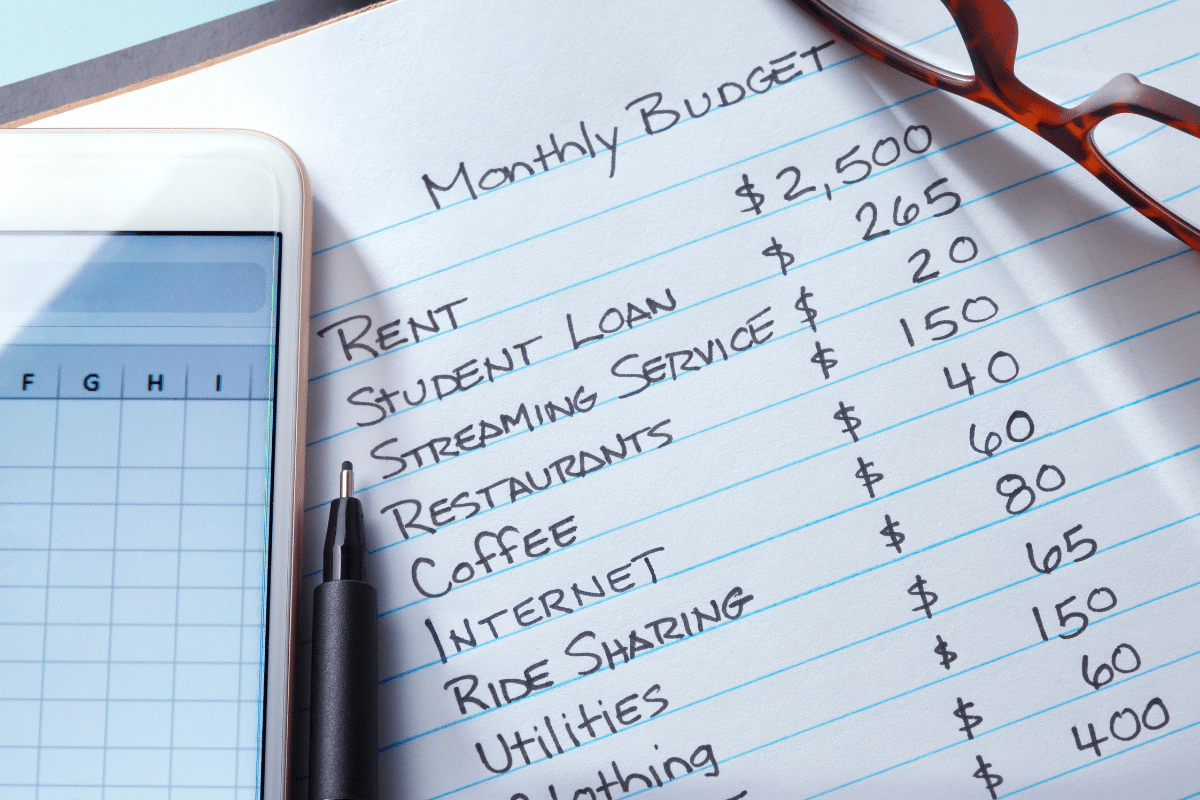 Monthly BUDGET
RENT $ 2,500
STUDENT LOAN $ 265
STREAMING SERVICE $ 20
RESTAURANTS $ 150
COffEE $ 40
INTERNET $ 60
RIDE SHARING $ 80
UtilitiES $ 65
Clothing $ 150
$ 60
$ 400
F G H I